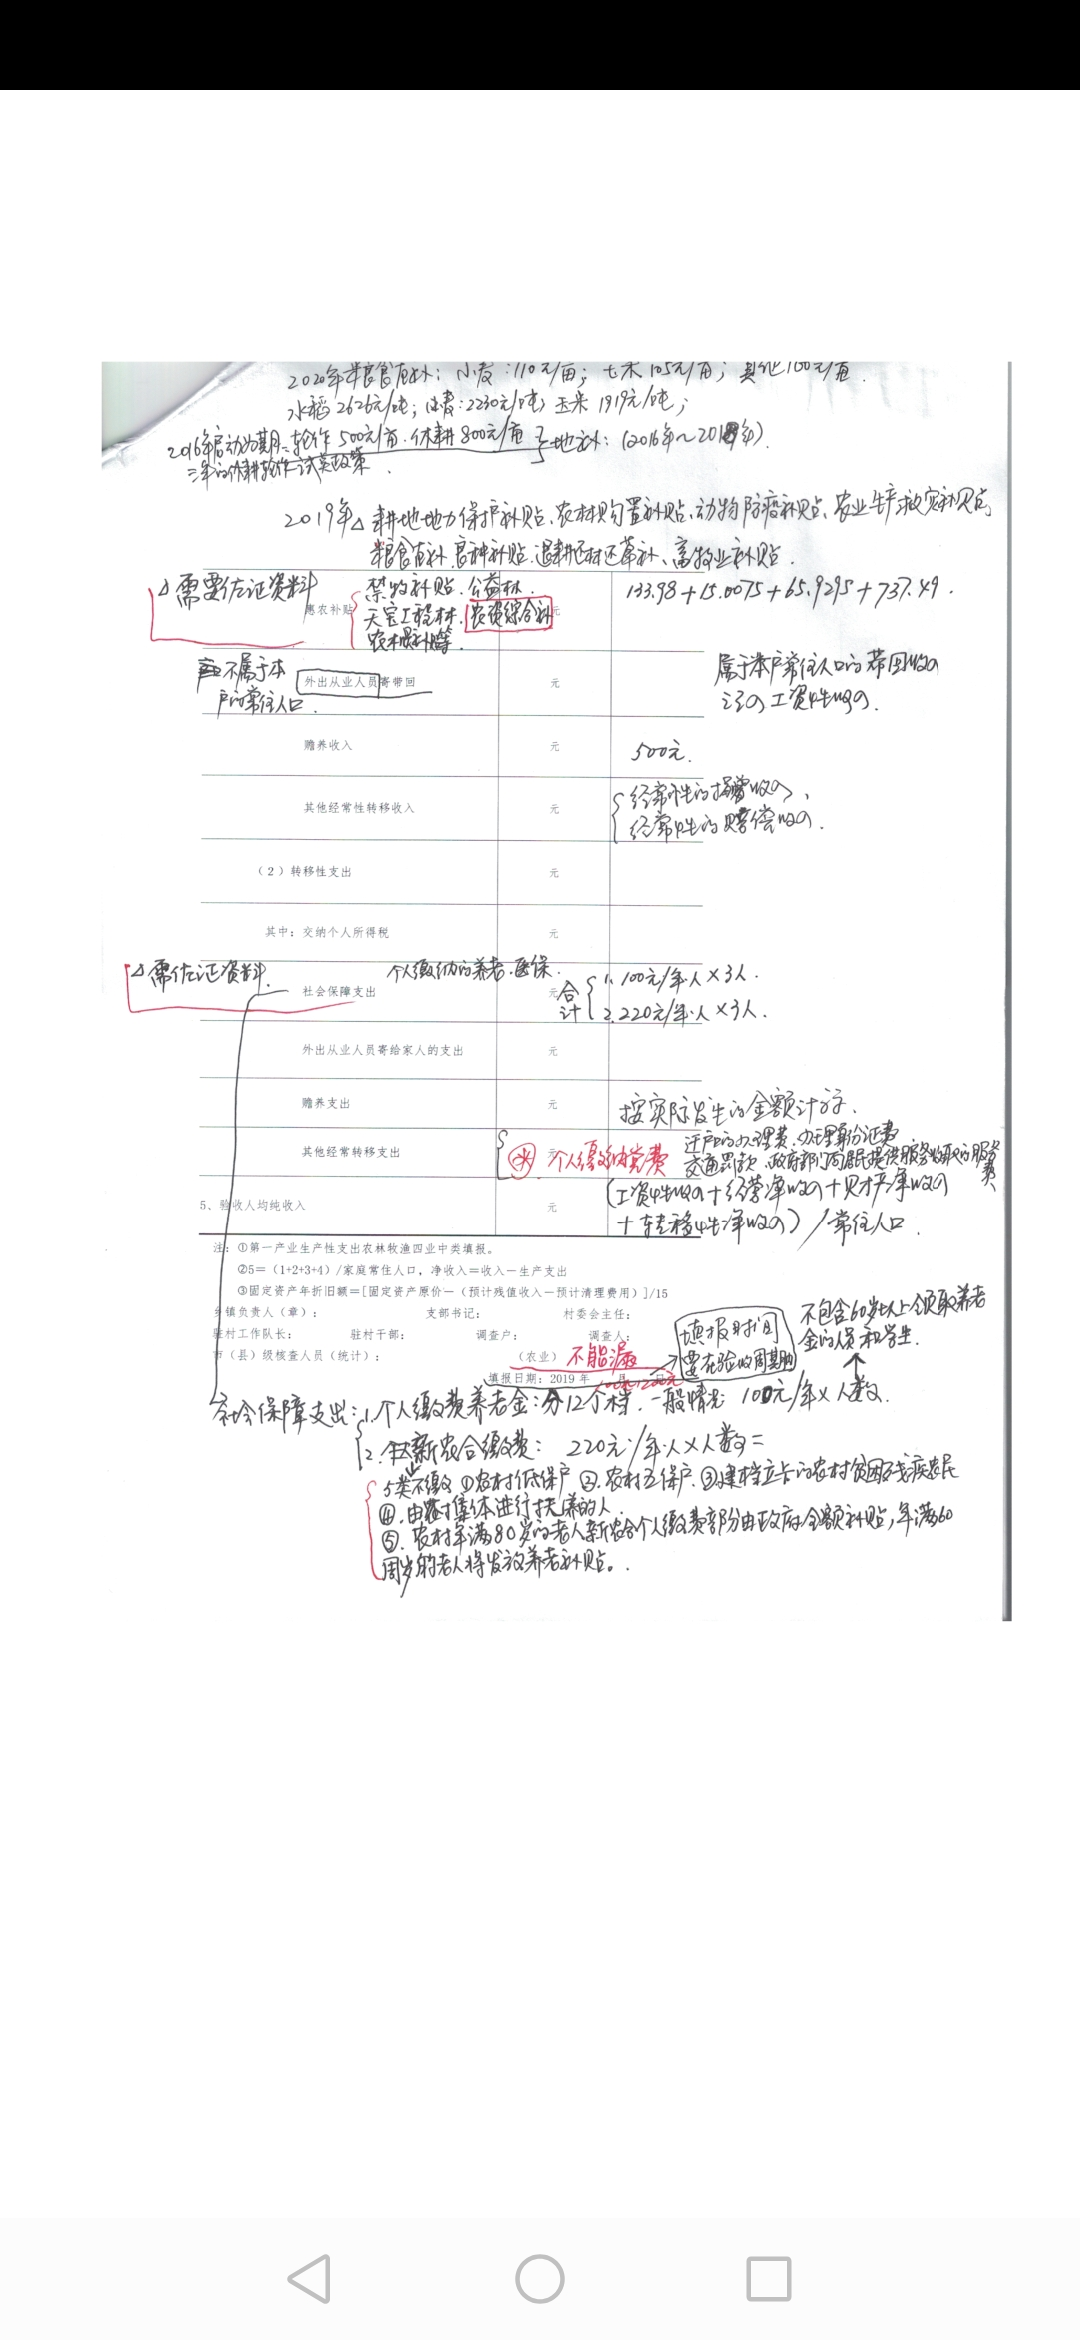 2020年粮食直补：小麦：110元/亩；玉米105元/亩；其他100元/亩.
水稻2626元/吨；小麦：2230元/吨；玉米1919元/吨；
2016年启动为期 轮作500元/亩.休耕800元/亩 地补：(2016年～2018年).
三年的休耕轮作试点政策.
2019年△耕地地力保护补贴、农机购置补贴、动物防疫补贴、农业生产救灾补贴
粮食直补.良种补贴.退耕还林还草补、畜牧业补贴.
△需要佐证资料
禁牧补贴.公益林.
133.98+15.0075+65.9295+737.49.
惠农补贴
天宝工程林.农资综合补
元
不属于本
户的常住人口.
外出从业人员寄带回
元
属于本户常住人口的带回收入
记入工资性收入.
赡养收入
元
500元.
其他经常性转移收入
元
经常性的捐赠收入、
经常性的赔偿收入.
（2）转移性支出
元
其中：交纳个人所得税
元
△需佐证资料.
个人缴纳的养老.医保.
社会保障支出
元
合计
1.100元/年.人×3人.
2.220元/年.人×3人.
外出从业人员寄给家人的支出
元
赡养支出
元
按实际发生的金额计算.
其他经常转移支出
元
个人缴纳党费
迁户口的办理费.办理身份证费
交通罚款.政府部门向居民提供服务收取的服务费
5、验收人均纯收入
元
(工资性收入+经营净收入+财产净收入
+转移性净收入)/常住人口.
注：①第一产业生产性支出农林牧渔四业中类填报。
②5=（1+2+3+4）/家庭常住人口，净收入=收入－生产支出
③固定资产年折旧额=[固定资产原价－（预计残值收入－预计清理费用）]/15
乡镇负责人（章）： 支部书记： 村委会主任：
驻村工作队长： 驻村干部： 调查户： 调查人：
市（县）级核查人员（统计）： （农业） 不能漏
填报日期：2019 年 月 日
填报时间
要在验收周期内
不包含60岁以上领取养老
金的人员和学生.
社会保障支出：1.个人缴费养老金：分12个档.一般情况 100元/年×人数.
2.新农合缴费：220元/年.人×人数=
5类不缴①农村低保户②.农村五保户.③建档立卡的农村贫困残疾农民
④.由农村集体进行扶养的人.
⑤.农村年满80岁的老人新农合个人缴费部分由政府全额补贴，年满60
周岁的老人将发放养老补贴。.